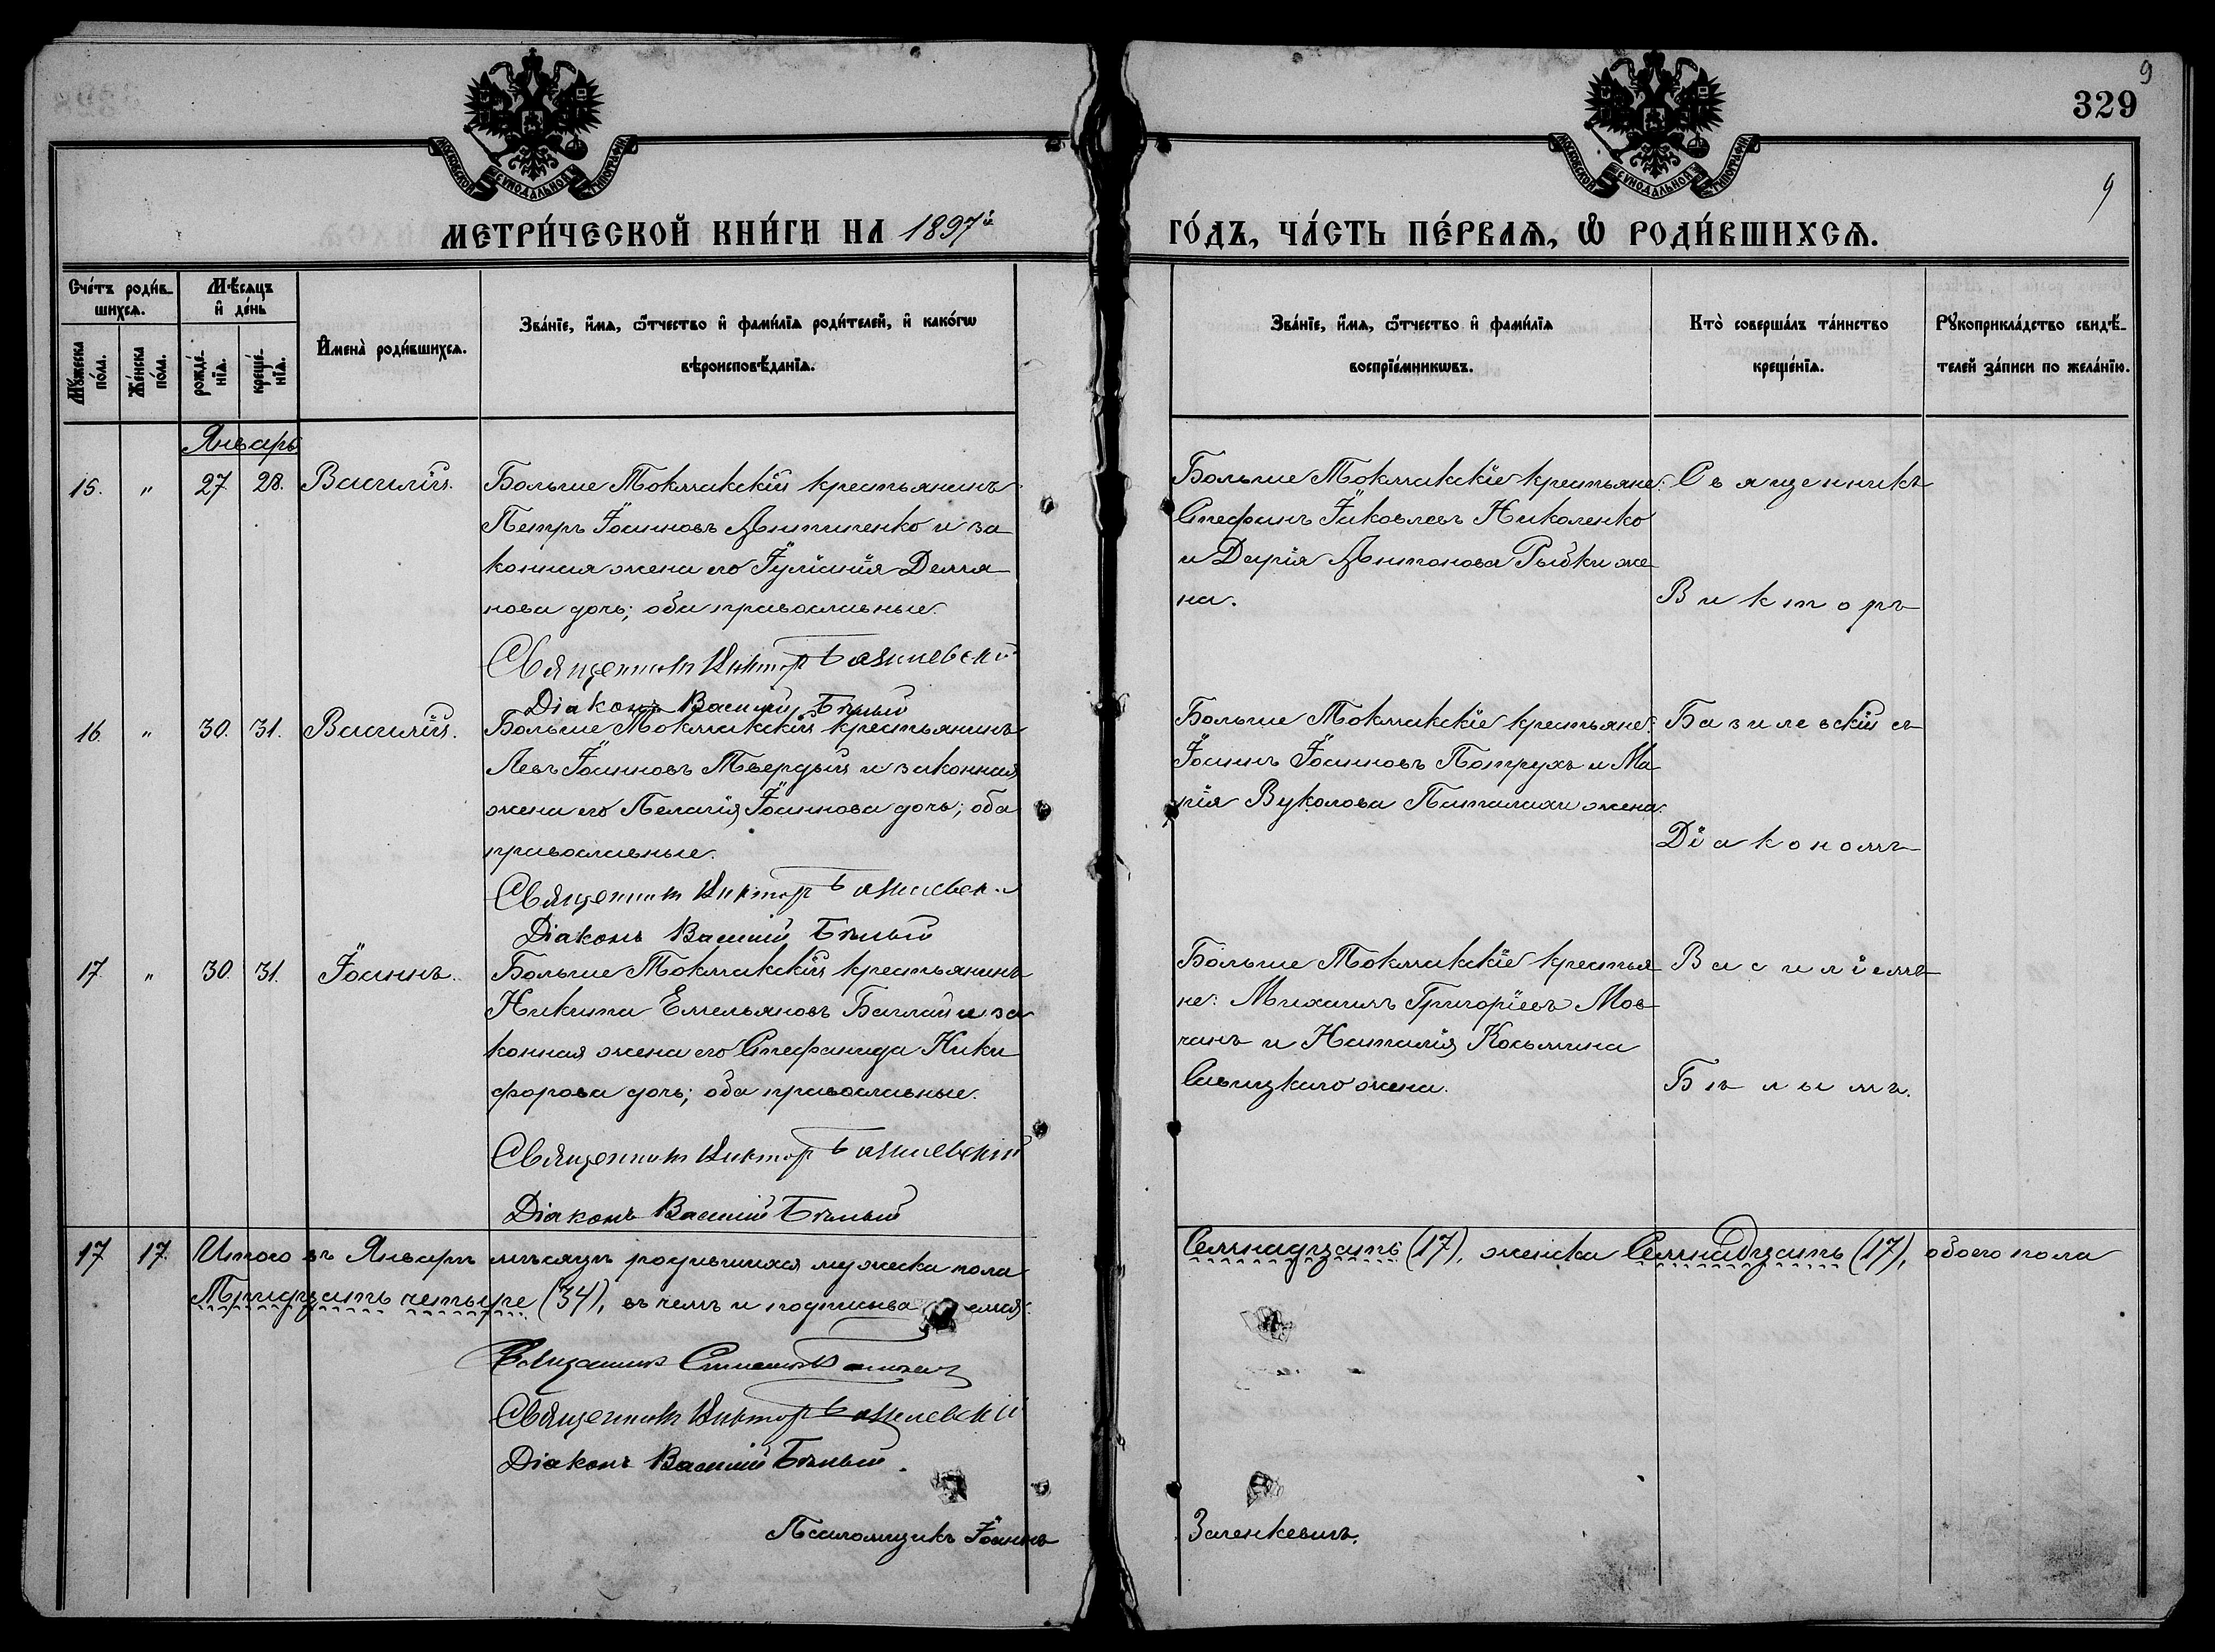 9
329
9
МОСКОВСКОЙ СѴНОДАЛЬНОЙ ТИПОГРАФІИ
МОСКОВСКОЙ СѴНОДАЛЬНОЙ ТИПОГРАФІИ
МЕТРИ́ЧЕСКОЙ КНИ́ГИ НА 1897й
ГО́ДЪ, ЧА́СТЬ ПЕ́РВАѦ, Ѡ РОДИ́ВШИХСѦ.
Сче́тъ роди́в-
шихсѧ.
Мꙋ́жеска по́ла.
Же́нска по́ла.
Мѣ́сѧцъ
и҆ де́нь
рожде́-
нїѧ.
креще́-
нїѧ.
И҆мена̀ роди́вшихсѧ.
Зва́нїе, и҆́мѧ, ѻ҆́тчество и҆ фами́лїѧ роди́телей, и҆ како́гѡ
вѣроисповѣ́данїѧ.
Зва́нїе, и҆́мѧ, ѻ҆́тчество и҆ фами́лїѧ
воспрїе́мникѡвъ.
Кто̀ соверша́лъ та́инство
креще́нїѧ.
Рꙋкоприкла́дство свидѣ́-
телей за́писи по жела́нїю.
Январь
15. " 27. 28. Василій.
Больше Токмакскій крестьянинъ
Петръ Іоанновъ Антипенко и за
конная жена его Іуліанія Демья
нова дочь; оба православные.
Священникъ Викторъ Базилевскій
Діаконъ Василій Бѣлый
Больше Токмакскіе крестьяне:
Стефанъ Іаковлевъ Николенко
и Дарія Антонова Рыбки же
на.
Священникъ
Викторъ
16. " 30. 31. Василій.
Больше Токмакскій крестьянинъ
Левъ Іоанновъ Твердый и законная
жена его Пелагія Іоаннова дочь; оба
православные.
Священникъ Викторъ Базилевскій
Діаконъ Василій Бѣлый
Больше Токмакскіе крестьяне:
Іоаннъ Іоанновъ Потрухъ и Ма
рія Вуколова жена.
Базилевскій съ
Діакономъ
17. " 30. 31. Іоаннъ.
Больше Токмакскій крестьянинъ
Никита Емельяновъ Баглай и за
конная жена его Стефанида Ники
форова дочь; оба православные.
Священникъ Викторъ Базилевскій
Діаконъ Василій Бѣлый
Больше Токмакскіе крестья
не: Михаилъ Григоріевъ Мов
чанъ и Наталія Косьмина
Савицкаго жена.
Василіемъ
Бѣлымъ.
17 17. Итого въ Январѣ мѣсяцѣ родившихся мужеска пола
Семнадцать (17), женска Семнадцать (17), обоего пола
Тридцать четыре (34), въ чемъ и подписываемся:
Священникъ
Священникъ Викторъ Базилевскій
Діаконъ Василій Бѣлый.
Псаломщикъ Іоаннъ
Заленкевичъ.